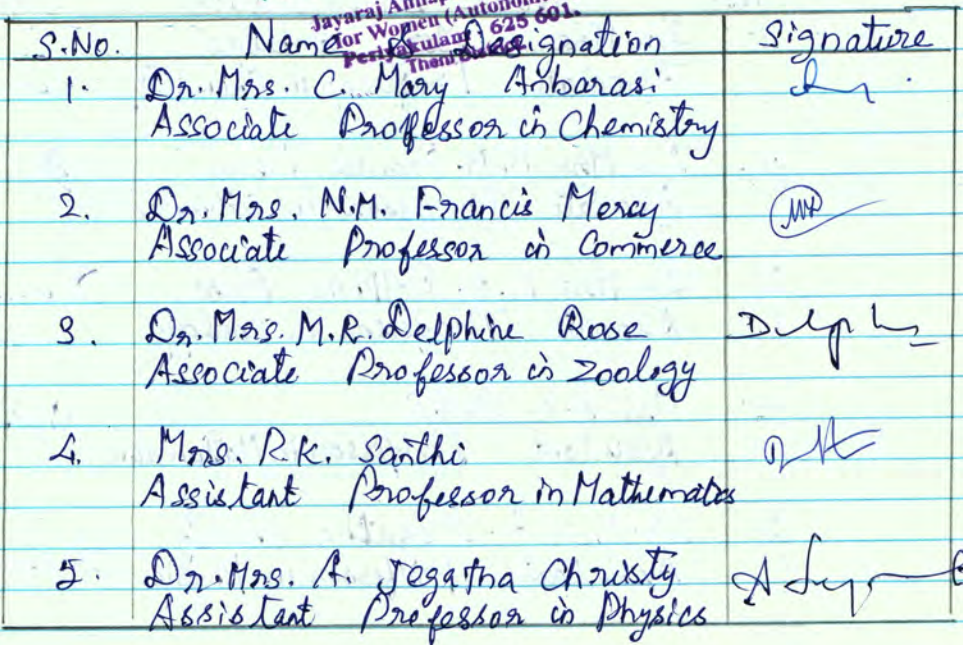 Jayaraj
for Women (Autonom
Periyakulam 625 601.
Theni
S.No. Name & Designation Signature
1. Dr. Mrs. C. Mary Anbarasi
Associate Professor in Chemistry
2. Dr. Mrs. N.M. Francis Mercy
Associate Professor in Commerce
3. Dr. Mrs. M.R. Delphine Rose
Associate Professor in Zoology
4. Mrs. R.K. Santhi
Assistant Professor in Mathematics
5. Dr. Mrs. A. Jegatha Christy
Assistant Professor in Physics